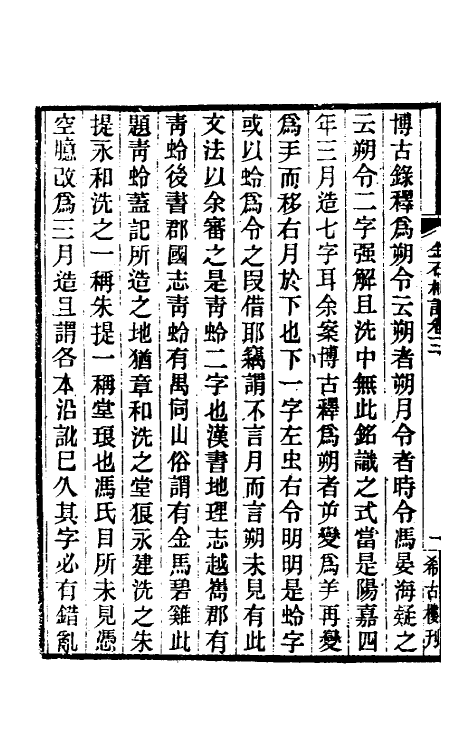 博古錄釋爲朔令云朔者朔月令者時令馮晏海疑之
云朔令二字强解且洗中無此銘識之式當是陽嘉四
年三月造七字耳余案博古釋爲朔者前變爲𦍌再變
爲手而移右月於下也下一字左虫右令明明是蛉字
或以蛉爲令之叚借耶竊謂不言月而言朔未見有此
文法以余審之是靑蛉二字也漢書地理志越嶲郡有
靑蛉後書郡國志靑蛉有禺同山俗謂有金馬碧雞此
題靑蛉蓋記所造之地猶章和洗之堂狼永建洗之朱
提永和洗之一稱朱提一稱堂琅也馮氏目所未見憑
空臆改爲三月造且謂各本沿訛已久其字必有錯亂
卷三
希古樓刋